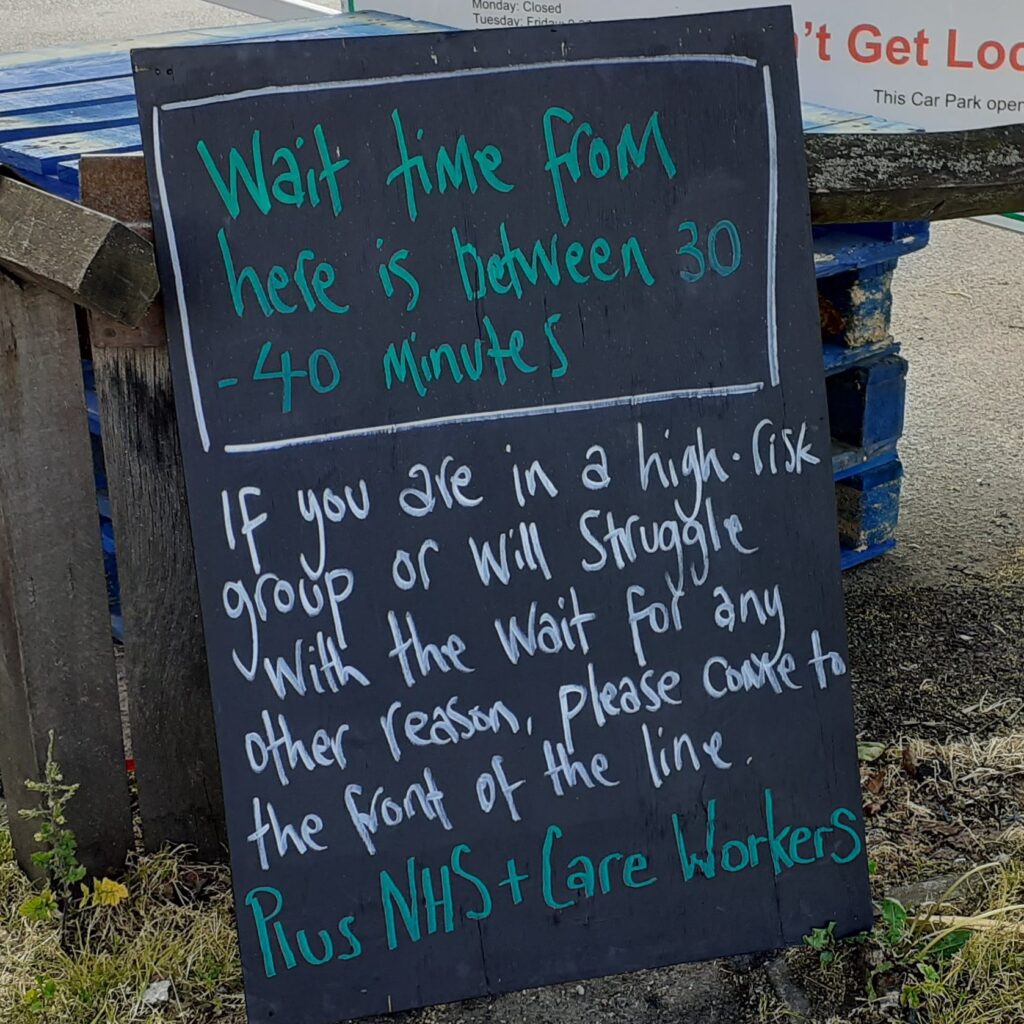 Monday: Closed
Tuesday: Friday
't Get Loc
This Car Park open
Wait time from
here is between 30
- 40 Minutes
If you are in a high-risk
group or will Struggle
With the wait for any
other reason, please come to
the front of the line.
Plus NHS + Care Workers